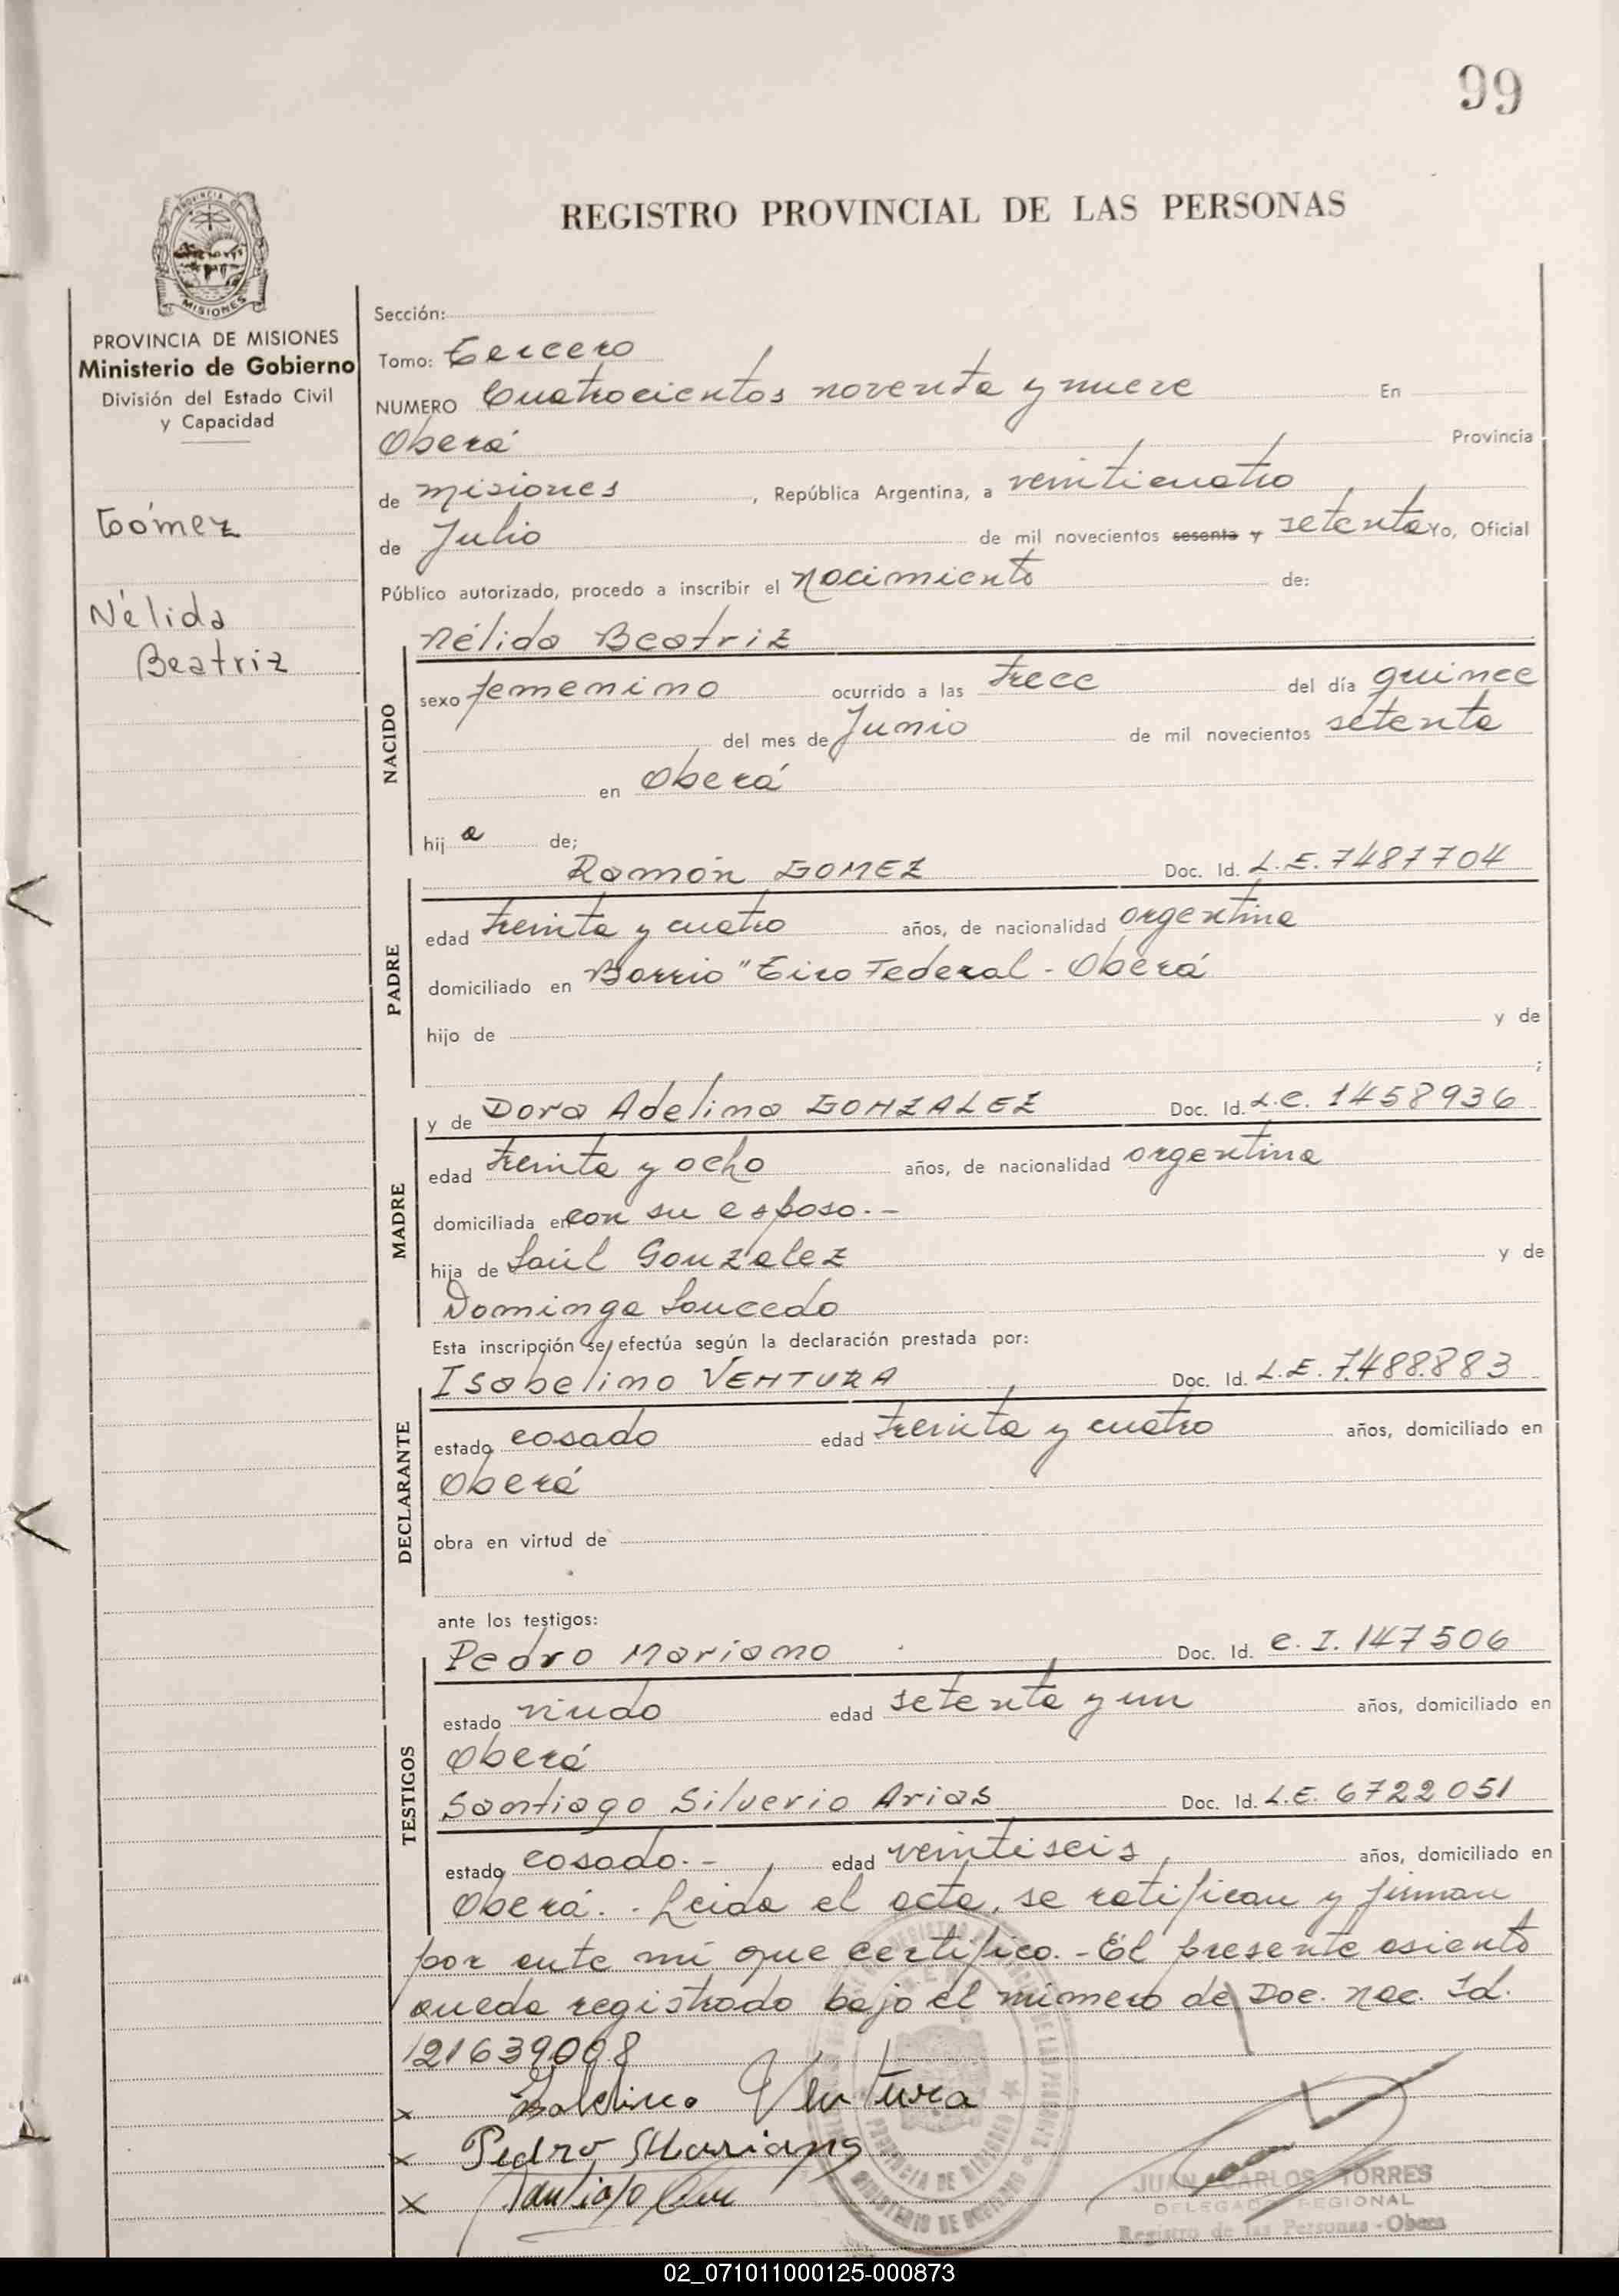 99
REGISTRO PROVINCIAL DE LAS PERSONAS
PROVINCIA DE MISIONES
Ministerio de Gobierno
División del Estado Civil
y Capacidad
Gómez
Nélida
Beatriz
Sección:
Tomo: Tercero
NUMERO Cuatrocientos noventa y nueve En
Oberá Provincia
de misiones, República Argentina, a veinticuatro
de Julio de mil novecientos sesenta y setenta Yo, Oficial
Público autorizado, procedo a inscribir el nacimiento de:
NACIDO
Nélida Beatriz
sexo femenino ocurrido a las trece del día quince
del mes de Junio de mil novecientos setenta
en Oberá
hija de;
PADRE
Ramón GOMEZ Doc. Id. L.E. 7487704
edad treinta y cuatro años, de nacionalidad argentina
domiciliado en Barrio "Tiro Federal - Oberá
hijo de y de
;
MADRE
y de Dora Adelina GONZALEZ Doc. Id. L.C. 1458936
edad treinta y ocho años, de nacionalidad argentina
domiciliada en con su esposo.-
hija de Saúl Gonzalez y de
Dominga Saucedo
Esta inscripción se efectúa según la declaración prestada por:
DECLARANTE
Isabelino VENTURA Doc. Id. L.E. 7.488.883
estado casado edad treinta y cuatro años, domiciliado en
Oberá
obra en virtud de
ante los testigos:
TESTIGOS
Pedro Mariano Doc. Id. C.I. 147506
estado viudo edad setenta y un años, domiciliado en
Oberá
Santiago Silverio Arias Doc. Id. L.E. 6722051
estado casado.- edad veintiseis, años, domiciliado en
Oberá.. Leida el acta, se ratifican y firman
por ante mí que certifico.- El presente asiento
queda registrado bajo el número de Doc. nac. Id.
121639008
x Ventura
x Pedro Mariano
x Santiago
PROVINCIA DE MISIONES
MINISTERIO DE GOBIERNO
JUAN CARLOS TORRES
DELEGADO REGIONAL
Registro de las Personas - Obera
02_071011000125-000873